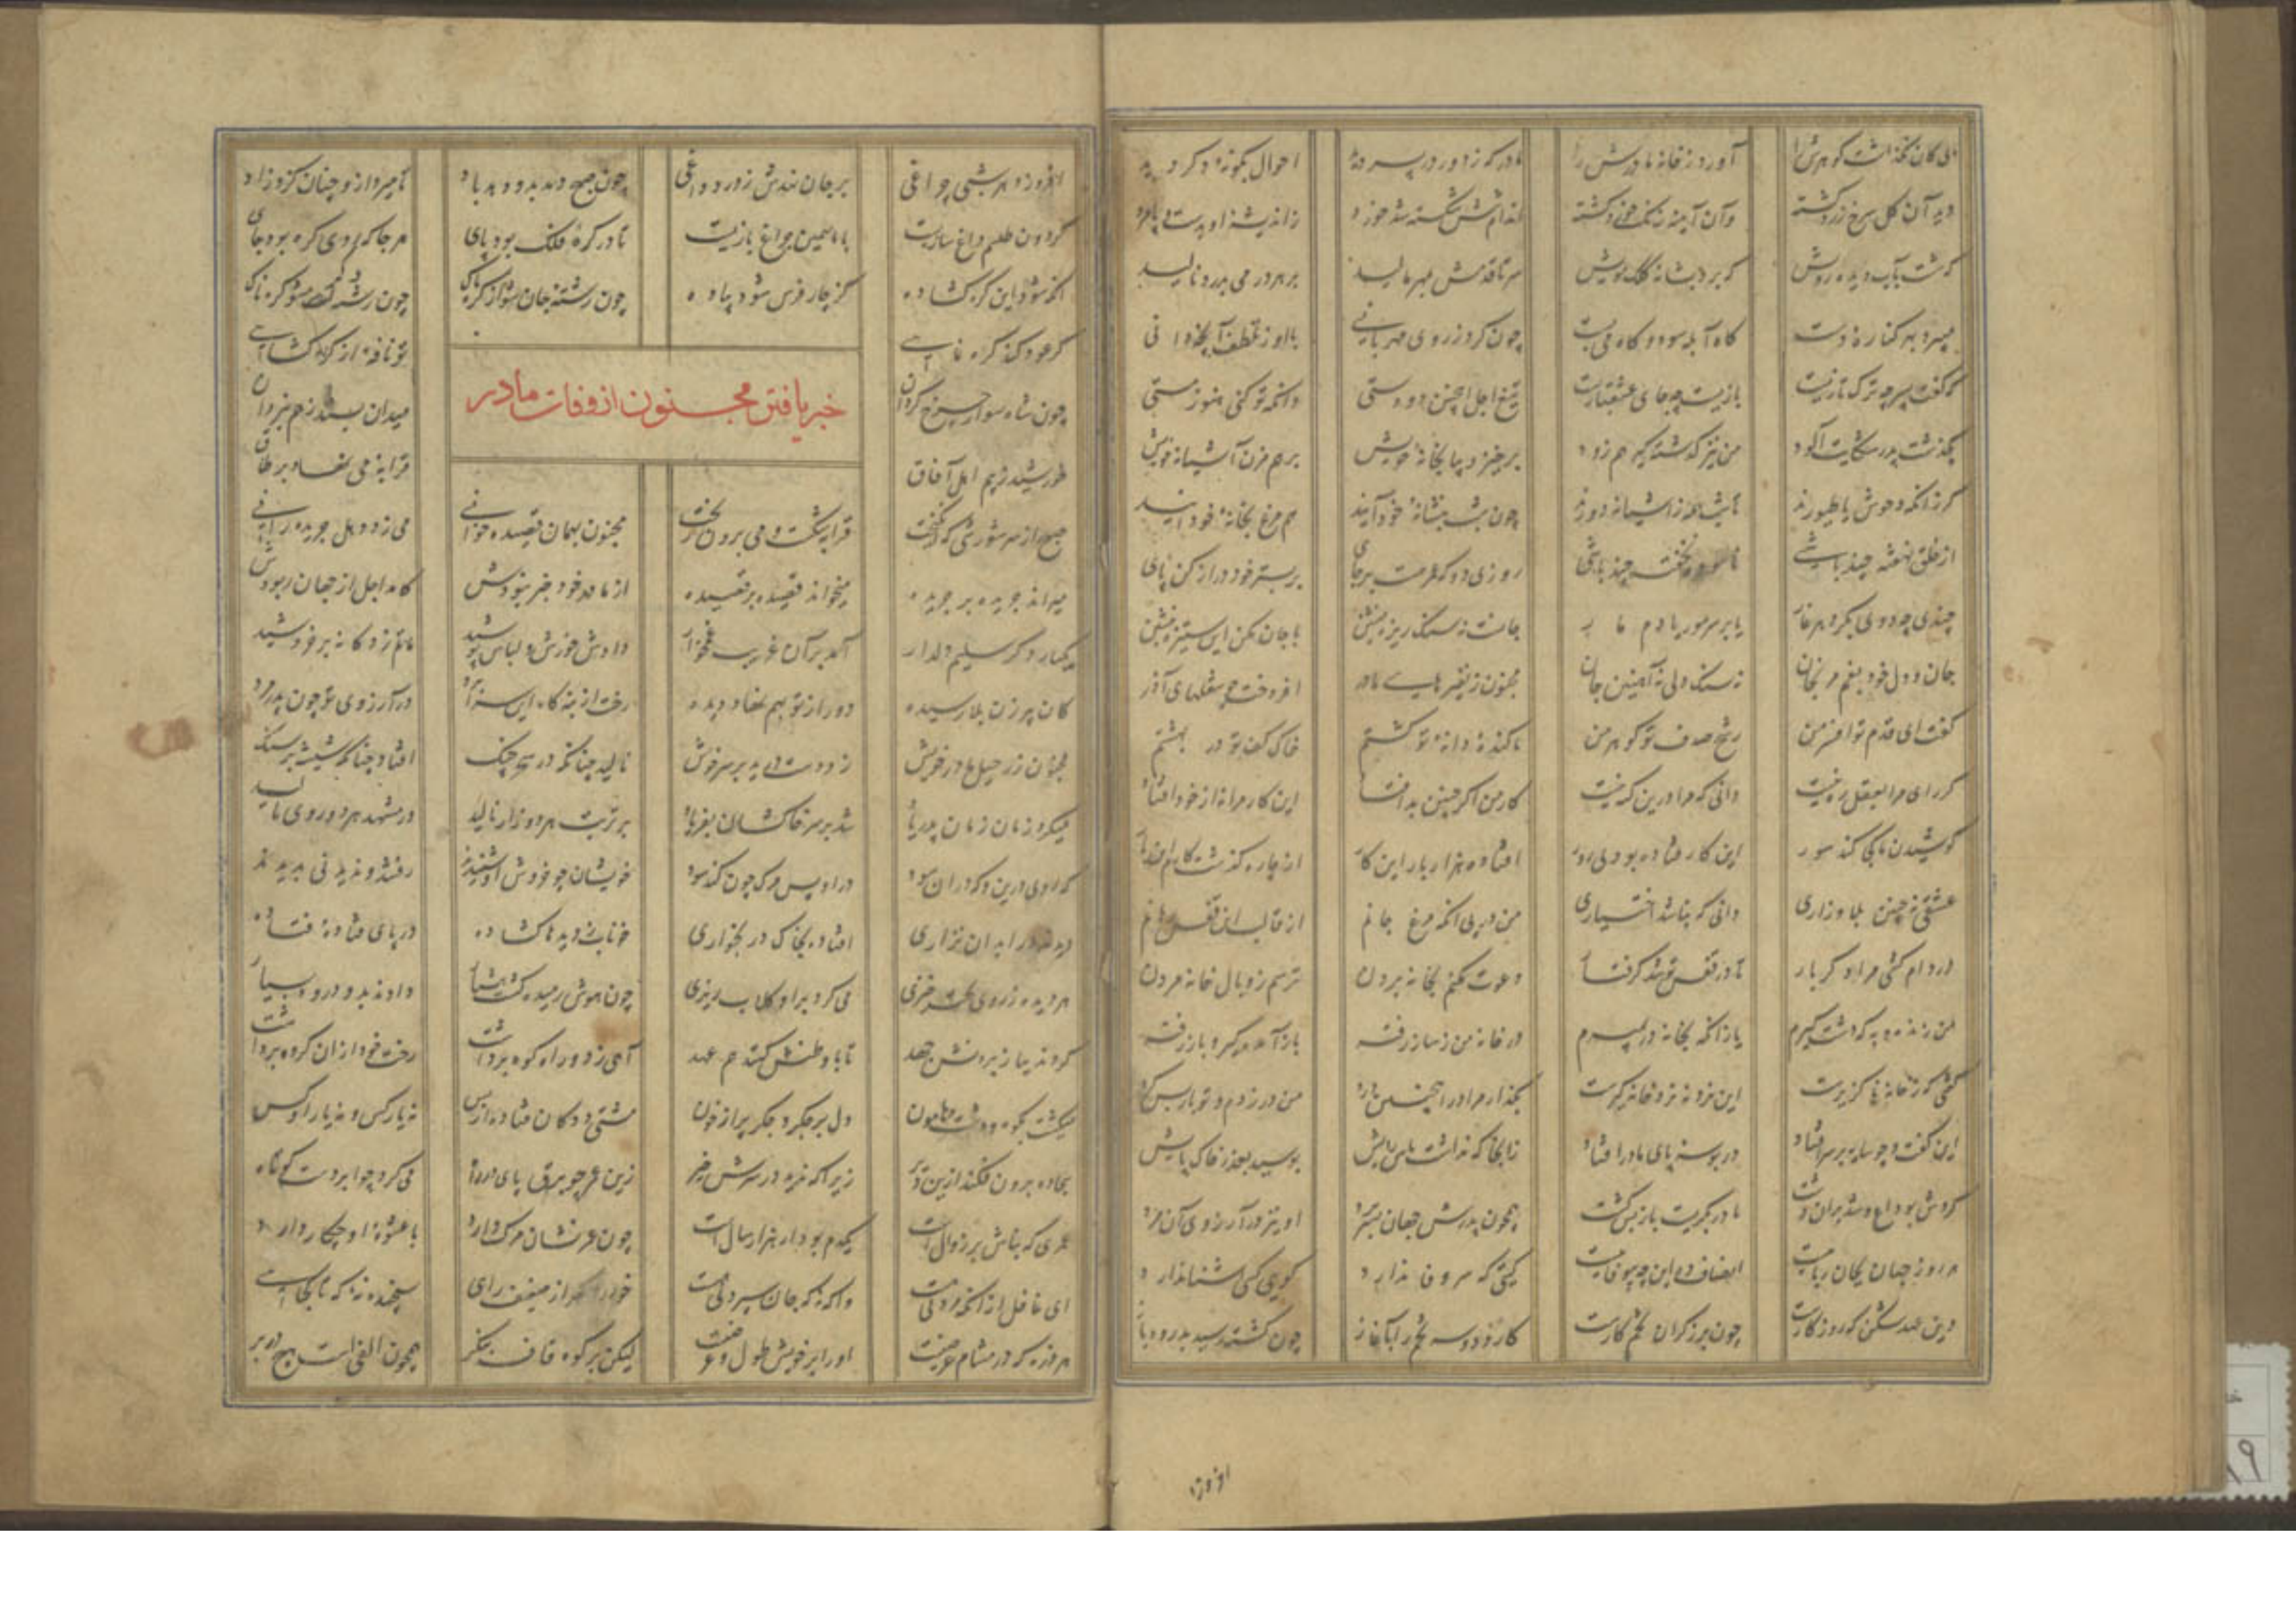 بی کان نگذاشت گوهرش را آورد ز خانه مادرش را مادر که ز دور در پسر دید احوال بگونه دگر دید
دید آن گل سرخ زرد گشته وآن آینه زنگ خورد گشته اندامش شکسته شد خورد زاندیشه او بدست و پا مرد
که شست بآب دیده رویش که برد بشانه کلک مویش سر تا قدمش بمهر مالید بر هر ورمی بدرد نالید
میبرد بهر کناره دست گاه آبله سود و گاه می بست چون کرد ز روی مهربانی با او ز تلطف آنچه دانی
گفت ای پسر چه ترک تازیست بازیست چه جای عشقبازیست تیغ اجل این چنین دو دستی وانگه تو کنی هنوز مستی
بگذشت پدر شکایت آلود من نیز گذشته گیر هم زود برخیز و بیا بخانه خویش بر هم مزن آشیانه خویش
گر زانکه وحوش یا طیورند تا شب ز آشیانه دورند چون شب بنشانه خود آیند هر مرغ بخانه خود آیند
از خلق نهفته چند باشی ناسوده نخفته چند باشی روزی دو که عمر هست برجای بر بستر خود دراز کن پای
چندی چو ددی بگرد هر غار یا بر سر مور یا دم مار جانست نه سنگ ریزه بنشین با جان مکن این ستیزه بنشین
جان و دل خود بغم مرنجان نه سنگ دلی نه آهنین جان مجنون ز نفیر های مادر افروخت چو شعلهای آذر
گفت ای قدم تو افسر من رنج صدف تو گوهر من ناکنده دانه تو کشتم خاک کف تو در بهشتم
گر رای مرا بعقل ره نیست دانی که مرا درین گنه نیست کار من اگر چنین بد افتاد این کار مرا نه از خود افتاد
کوشیدن ما کجا کند سود این کار فتاده بود نی بود افتاده هزار بار این کار از چاره گذشت کارم این بار
عشقی چنین بلا و زاری دانی که نباشد اختیاری من در پی آنکه مرغ جانم از قالب این قفس رهانم
در دام کشی مرا دگر بار تا در قفس تو شد گرفتار دعوت مکنم بخانه بردن ترسم ز وبال خانه مردن
من زنده به که دشت گیرم یا زانکه بخانه در بمیرم در خانه من ز ساز رفته باز آمده گیر و باز رفته
گفتی که ز خانه ناگزیرست این نزد نه نزد خانه گیرست بگذار مرا در این چنین درد من درد زدم تو باز پس گرد
این گفت و چو سایه بر سر افتاد در بوسه پای مادر افتاد زانجا که نداشت پاس رایش بوسید بعذر خاک پایش
کردش بوداع و شد بران دشت مادر بگریست باز پس گشت همچون پدرش جهان بسر برد او نیز در آرزوی آن مرد
هر روز جهان بجان رباییست انصاف ده این چه بیوفاییست گیتی که سر وفا ندارد کوی کس آشنا ندارد
این عهد شکن که روزگارست چون برزگران تخم کارست کارد دو سه تخم را بآغاز چون کشته رسید بدرود باز
افروزد هر شبی چراغی بر جان نهدش ز درد داغی چون صبح دمد بدو دمد باد تا میرد ازو چنان کزو زاد
گردون طلسم داغ سازیست با ما همین چراغ بازیست تا در گره فلک بود پای هر جا که روی گره بود جای
آنگه شود این گره گشاده کز چار فرس شود پیاده چون رشته جان شو از گره پاک چون رشته تب مشو گره ناک
گر عود کند گره نمایی تو نافه از گره گشایی
خبر یافتن مجنون از وفات مادر
چون شاه سوار چرخ گردان میدان بستد ز هم نبردان
خورشید ز بیم اهل آفاق قرابه می نهاد بر طاق
صبح از سر شورشی که انگیخت قرابه شکست و می برون ریخت مجنون بهمان قصیده خوانی می زد دهل جریده رانی
میراند جریده بر جریده میخواند قصیده بر قصیده از مادر خود خبر نبودش کامد اجل از جهان ربودش
یکبار دگر سلیم دلدار آمد بر آن غریب غمخوار دادش خورش و لباس پوشید ماتم زدگانه بر خروشید
کان پیر زن بلا رسیده دور از تو بهم نهاد دیده رخت از بنه گاه این سرا برد در آرزوی تو چون پدر مرد
مجنون ز رحیل مادر خویش زد دست دریغ بر سر خویش نالید چنانکه در سحر چنگ افتاد چنانکه شیشه بر سنگ
میکرد زمان زمان پدر یاد شد بر سر خاکشان بفریاد بر تربت هر دو زار نالید در مشهد هر دو روی مالید
که روی درین و گه دران سود دارو پس مرگ چون کند سود خویشان چو خروش او شنیدند رفتند و ندیدنی بدیدند
دیدند ورا بدان نزاری افتاده بخاک در بخواری خونابه ز دیده ها گشاده در پای فتاده فتاده
هر دیده ز روی لخت خیزی می کرد برو گلاب ریزی چون هوش رمیده گشت هشیار دادند بدو درود بسیار
کردند بباز بردنش جهد تا با وطنش کنند هم عهد آهی زد و راه کوه برداشت رخت خود از آن گروه برداشت
میگشت بکوه و دشت و هامون دل پر جگر و جگر پر از خون مشتی ددگان فتاده از پس نه یار کس و نه یار او کس
سجاده برون فکند ازین دیر زیرا که ندید در سرش خیر زین عمر چو برق پای در راه می کرد چو ابر دست کوتاه
عمری که بناش بر زوال است یکدم بود ار هزار سال است چون عمر نشان مرگ دارد با عشوه او چکار دارد
ای غافل از آنکه مردنی هست واگه نه که جان سپردنی هست خود را مگر از ضعیف رای سنجیده نه که تا کجایی
هر ذره که در مشام عرضیست او را بر خویش طول و عرضیست لیکن بر کوه قاف پیکر همچون الف است هیچ در بر
افروزد